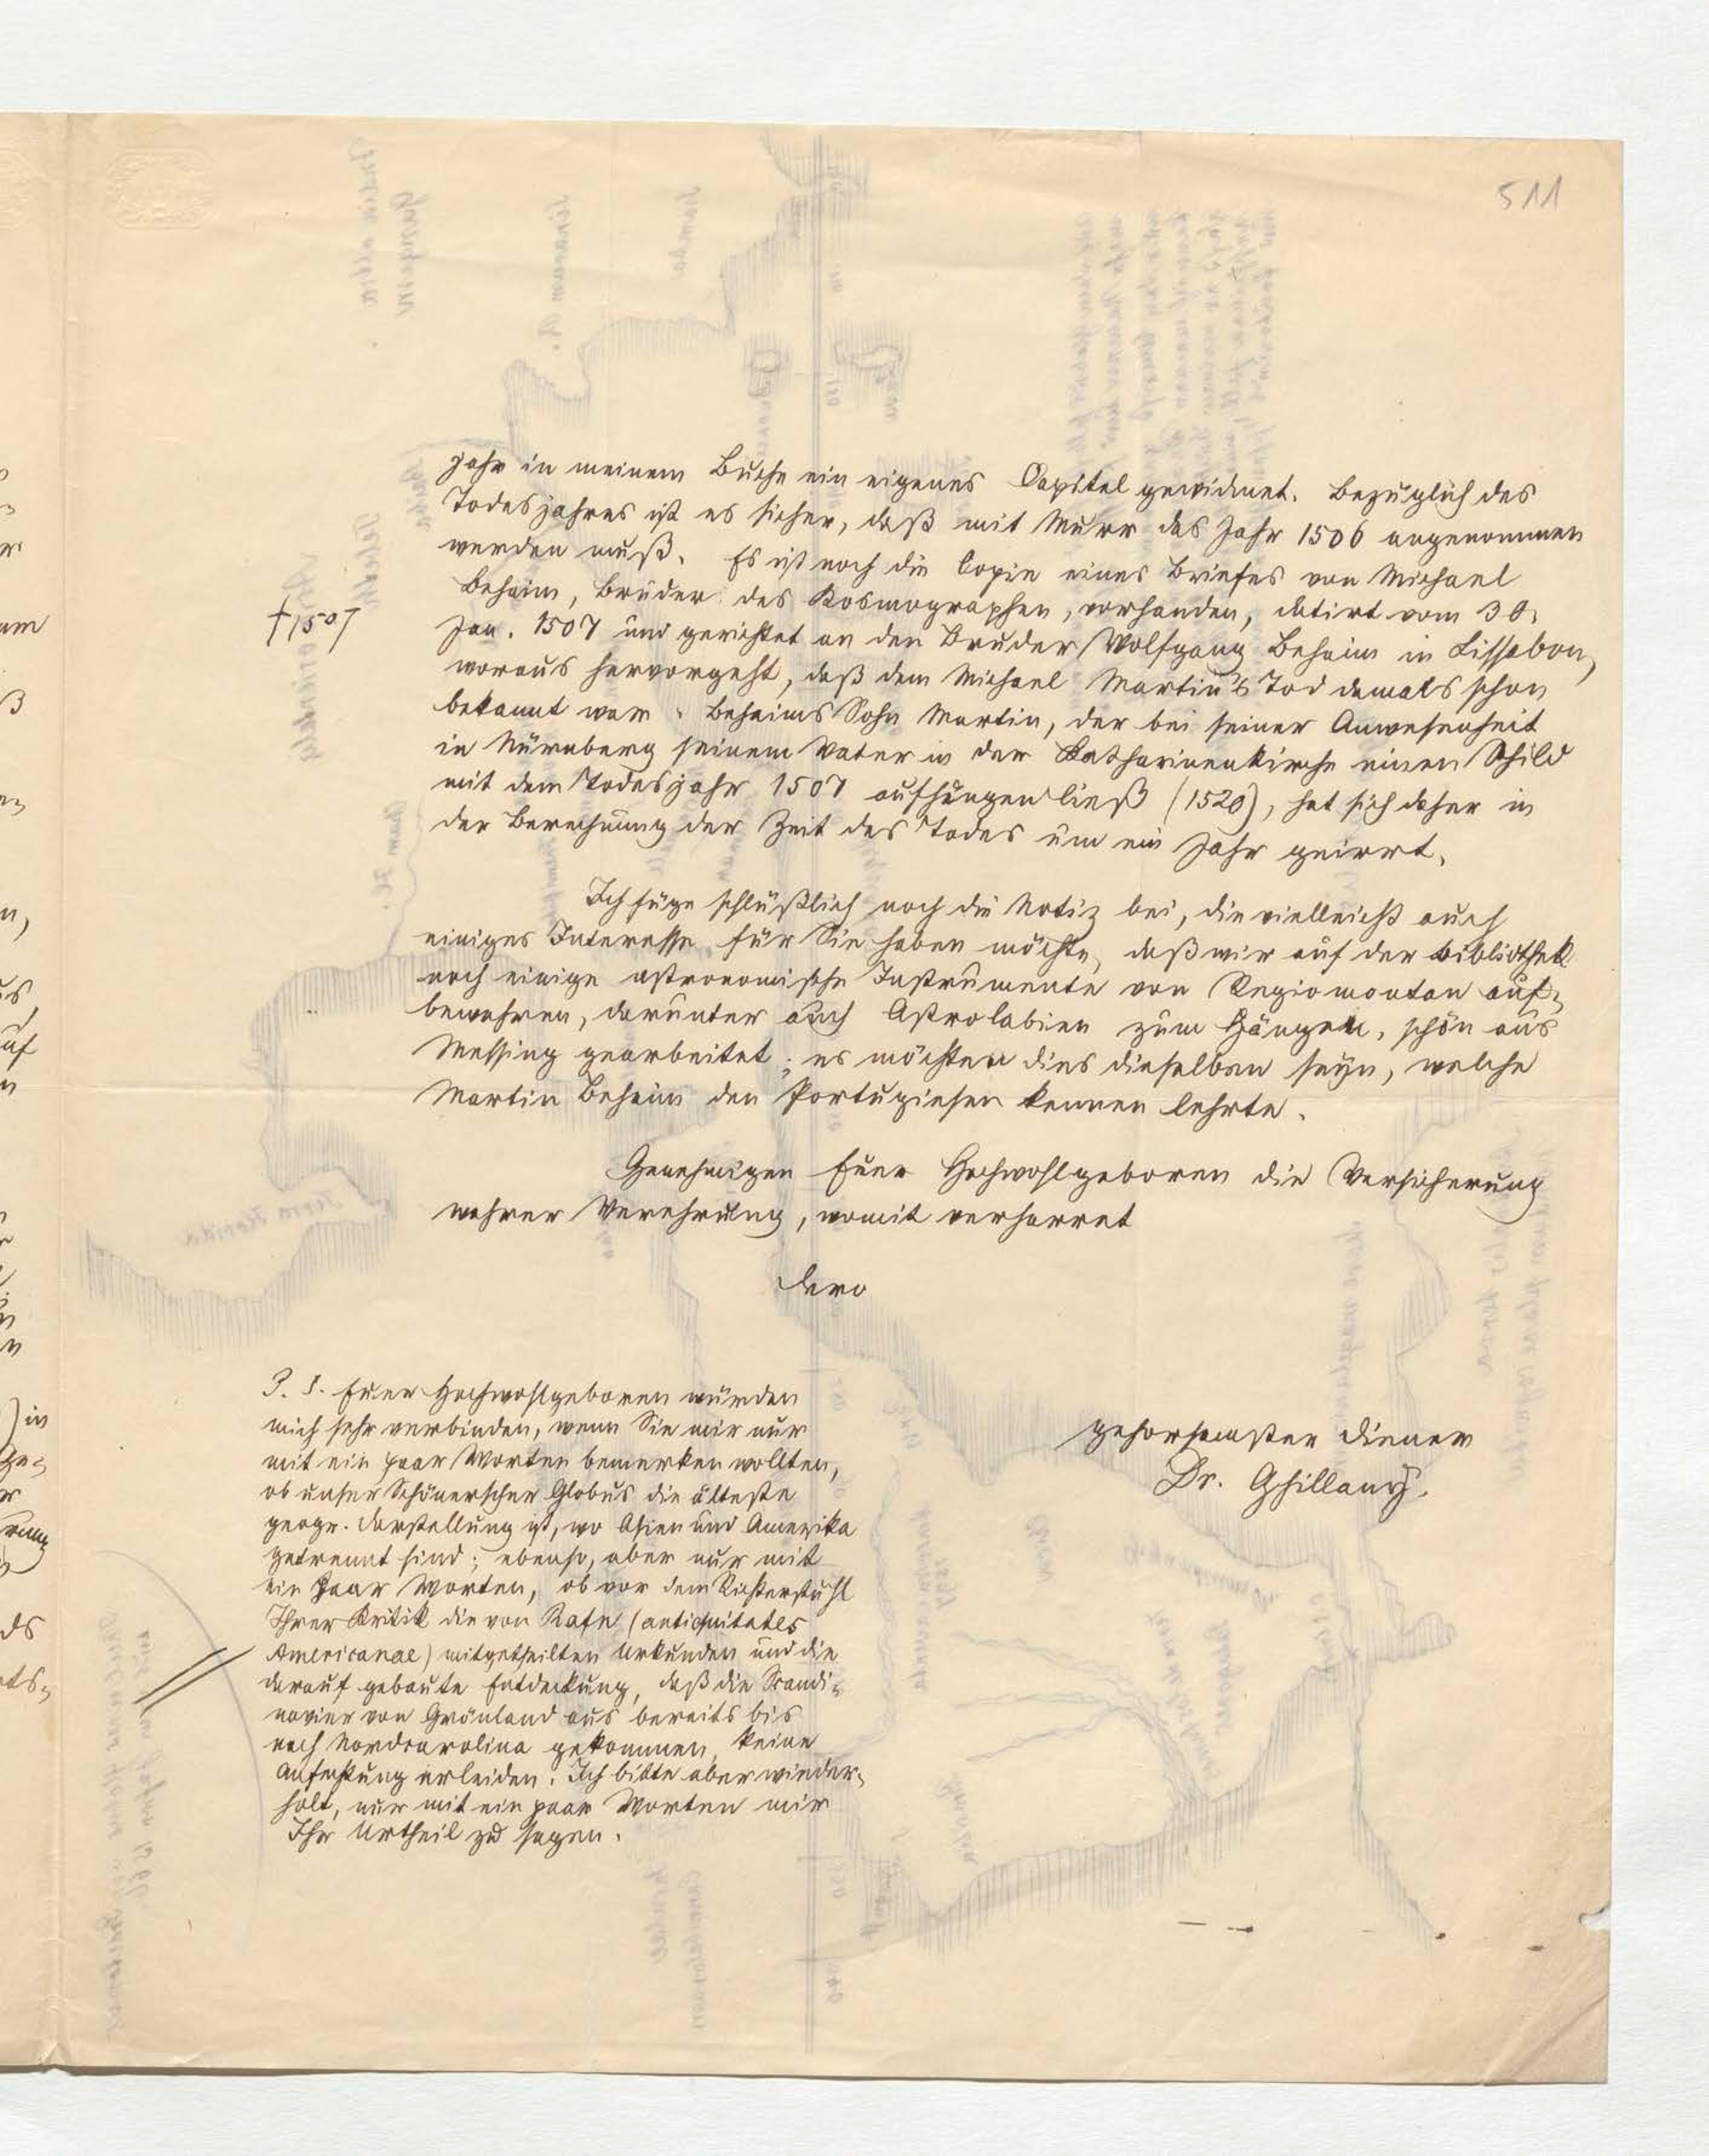 511
jahr in meinem Buche ein eigenes Capitel gewidmet. Bezüglich des
Todesjahres ist es sicher, daß mit Murr das Jahr 1506 angenommen
werden muß. Es ist noch die Copie eines Briefes von Michael
Behaim, Bruder des Kosmographen, vorhanden, datirt vom 30.
† 1507
Jan. 1507 und gerichtet an den Bruder Wolfgang Behaim in Lissabon,
woraus hervorgeht, daß dem Michael Martin's Tod damals schon
bekannt war. Behaims Sohn Martin, der bei seiner Anwesenheit
in Nürnberg seinem Vater in der Katharinenkirche einen Schild
mit dem Todesjahr 1507 aufhängen ließ (1520), hat sich daher in
der Berechnung der Zeit des Todes um ein Jahr geirrt.
Ich füge schlüßlich noch die Notiz bei, die vielleicht auch
einiges Interesse für Sie haben möchte, daß wir auf der Bibliothek
noch einige astronomische Instrumente von Regiomontan auf-
bewahren, darunter auch Astrolabien zum Hängen, schön aus
Messing gearbeitet; es möchten dies dieselben seyn, welche
Martin Behaim den Portugiesen kennen lehrte.
Genehmigen Euer Hochwohlgeboren die Versicherung
wahrer Verehrung, womit verharret
Dero
gehorsamster Diener
Dr. Ghillany.
P. S. Euer Hochwohlgeboren würden
mich sehr verbinden, wenn Sie mir nur
mit ein paar Worten bemerken wollten,
ob unser Schönerscher Globus die älteste
geogr. Darstellung ist, wo Asien und Amerika
getrennt sind; ebenso, aber nur mit
ein paar Worten, ob vor dem Richterstuhl
Ihrer Kritik die von Rafn (antiquitates
Americanae) mitgetheilten Urkunden und die
darauf gebaute Entdeckung, daß die Scandi-
navier von Grönland aus bereits bis
nach Nordcarolina gekommen, keine
Anfechtung erleiden. Ich bitte aber wieder-
holt, nur mit ein paar Worten mir
Ihr Urtheil zu sagen.